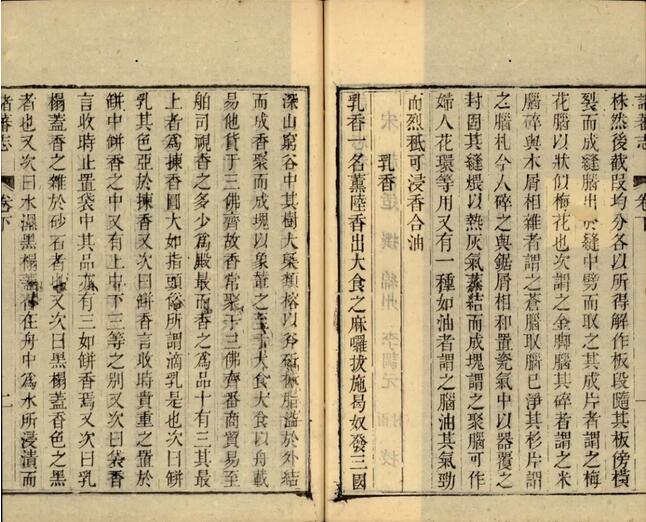 諸蕃志 卷下 一
株然後截段均分各以所得解作板段隨其板傍橫
裂而成縫腦出於縫中劈而取之其成片者謂之梅
花腦以狀似梅花也次謂之金脚腦其碎者謂之米
腦碎與木屑相雜者謂之蒼腦取腦已淨其杉片謂
之腦札今人碎之與鋸屑相和置瓷氣中以器覆之
封固其縫煨以熱灰氣蒸結而成塊謂之聚腦可作
婦人花環等用又有一種如油者謂之腦油其氣勁
而烈秪可浸香合油
乳香
乳香一名薰陸香出大食之麻囉拔施曷奴發三國
深山窮谷中其樹大槩類榕以斧斫株脂溢於外結
而成香聚而成塊以象輦之至于大食大食以舟載
易他貨于三佛齊故香常聚于三佛齊番商貿易至
舶司視香之多少爲殿最而香之爲品十有三其最
上者爲揀香圓大如指頭俗所謂滴乳是也次曰缾
乳其色亞於揀香又次曰缾香言收時貴重之置於
缾中缾香之中又有上中下三等之别又次曰袋香
言收時止置袋中其品亦有三如缾香焉又次曰乳
榻蓋香之雜於砂石者也又次曰黑榻蓋香色之黑
者也又次曰水濕黑榻蓋香在舟中爲水所浸漬而
諸蕃志 卷下 二